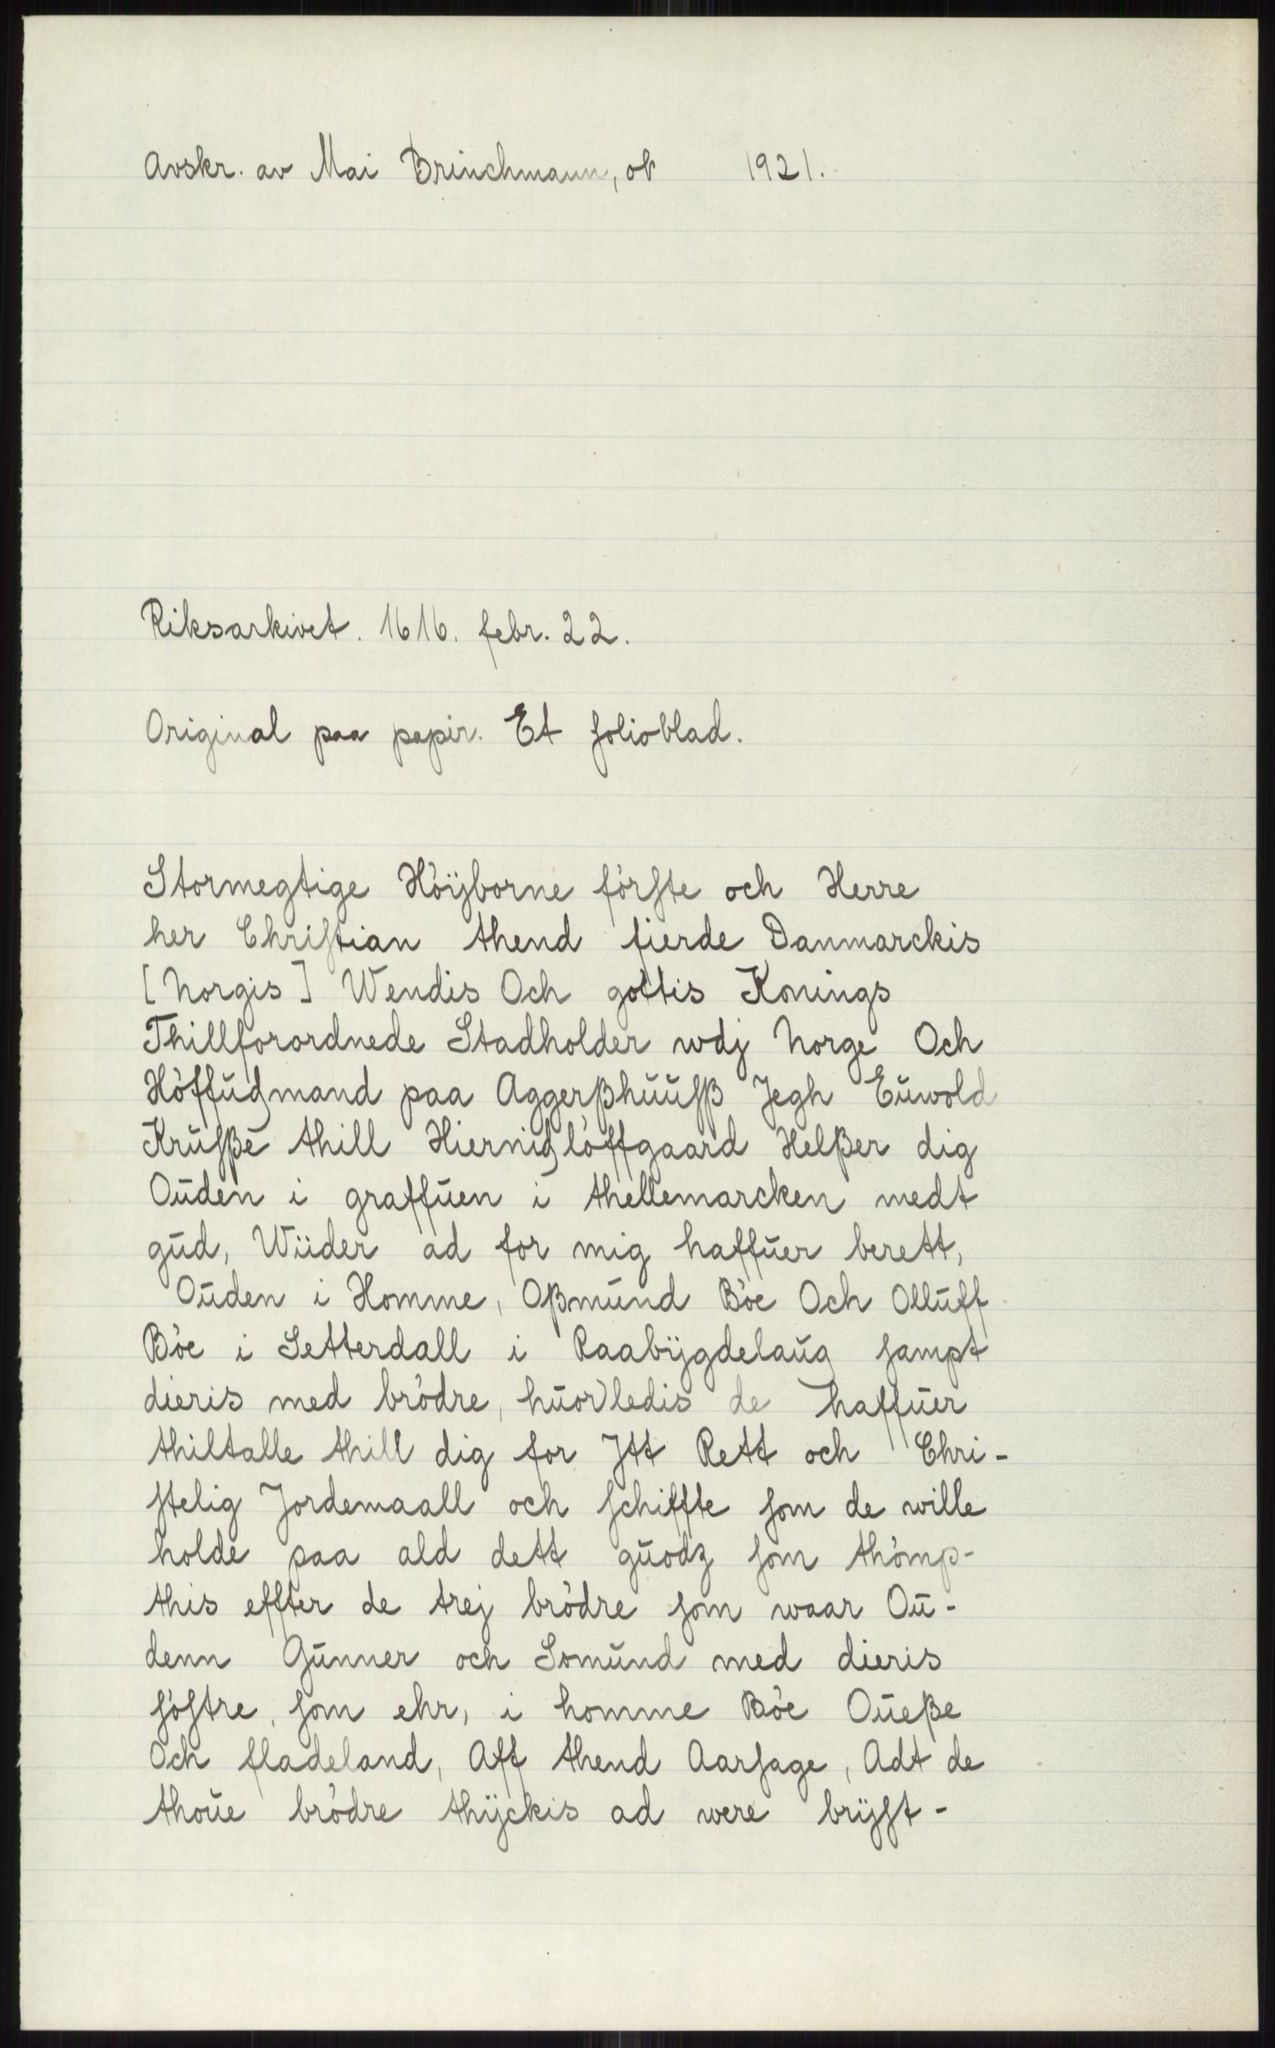 Avskr. av Mai Brinchmann, ok 1921.
Riksarkivet. 1616. febr. 22.
Original paa papir. Et folioblad.
Stormegtige Höÿborne förſte och Herre
her Chriſtian thend fierde Danmarckis
[Norgis] Wendis Och gottis Konings
Thillforordnede Stadholder wdj Norge Och
Höffuidmand paa Aggerßhuuſß Jegh Euwold
Kruſße thill Hiernidßlöffgaard Helßer dig
Ouden i graffuen i thellemarcken medt
gud, Wiider ad for mig haffuer berett,
Ouden i Homme, Oßmund Böe Och Olluff
Böe i Setterdall i Raabÿgdelaug ſampt
dieris med brödre, huorledis de haffuer
thiltalle thill dig for Jtt Rett och Chri-
ſtelig Jordemaall och ſchiffte ſom de wille
holde paa ald dett guodz ſom thömp-
this effter de trej brödre ſom waar Ou-
denn Gunner och Somund med dieris
ſöſtre, ſom ehr, i homme Böe Oueße
Och fladeland, Aff thend Aarſage, Adt de
thoue brödre thÿckis ad were brÿſt-